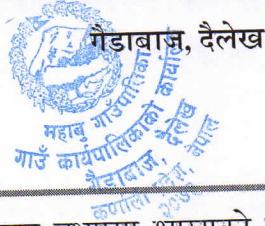 गैडाबाज, दैलेख
महाबु गाउँपालिका
गाउँ कार्यपालिकाको कार्यालय
गैडाबाज, दैलेख
कर्णाली प्रदेश, नेपाल
२०७३